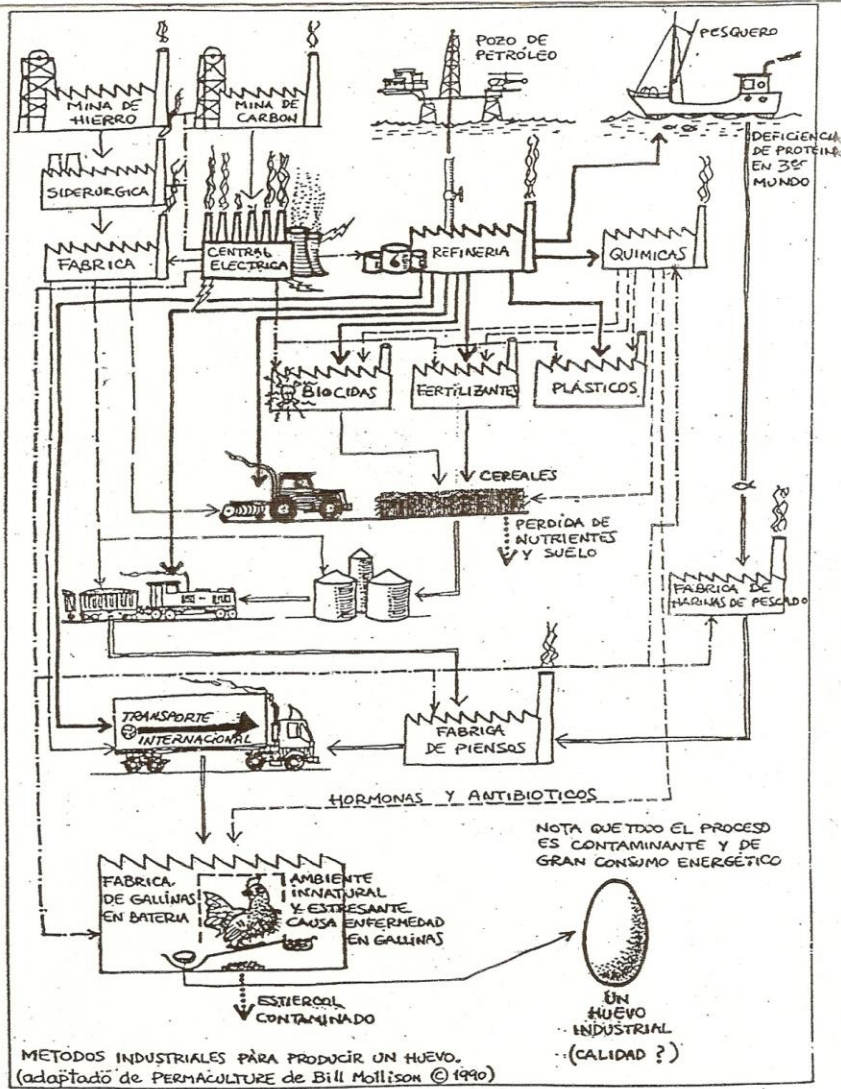 MINA DE
HIERRO
MINA DE
CARBON
POZO DE
PETRÓLEO
PESQUERO
DEFICIENCIA
DE PROTEINA
EN 3er
MUNDO
SIDERURGICA
FABRICA
CENTRAL
ELECTRICA
REFINERIA
QUIMICAS
BIOCIDAS
FERTILIZANTES
PLÁSTICOS
CEREALES
PERDIDA DE
NUTRIENTES
Y SUELO
FABRICA DE
HARINAS DE PESCADO
TRANSPORTE
INTERNACIONAL
FABRICA
DE PIENSOS
HORMONAS Y ANTIBIOTICOS
NOTA QUE TODO EL PROCESO
ES CONTAMINANTE Y DE
GRAN CONSUMO ENERGÉTICO
FABRICA
DE GALLINAS
EN BATERIA
AMBIENTE
INNATURAL
Y ESTRESANTE
CAUSA ENFERMEDAD
EN GALLINAS
ESTIERCOL
CONTAMINADO
UN
HUEVO
INDUSTRIAL
(CALIDAD ?)
METODOS INDUSTRIALES PARA PRODUCIR UN HUEVO.
(adaptado de PERMACULTURE de Bill Mollison © 1990)